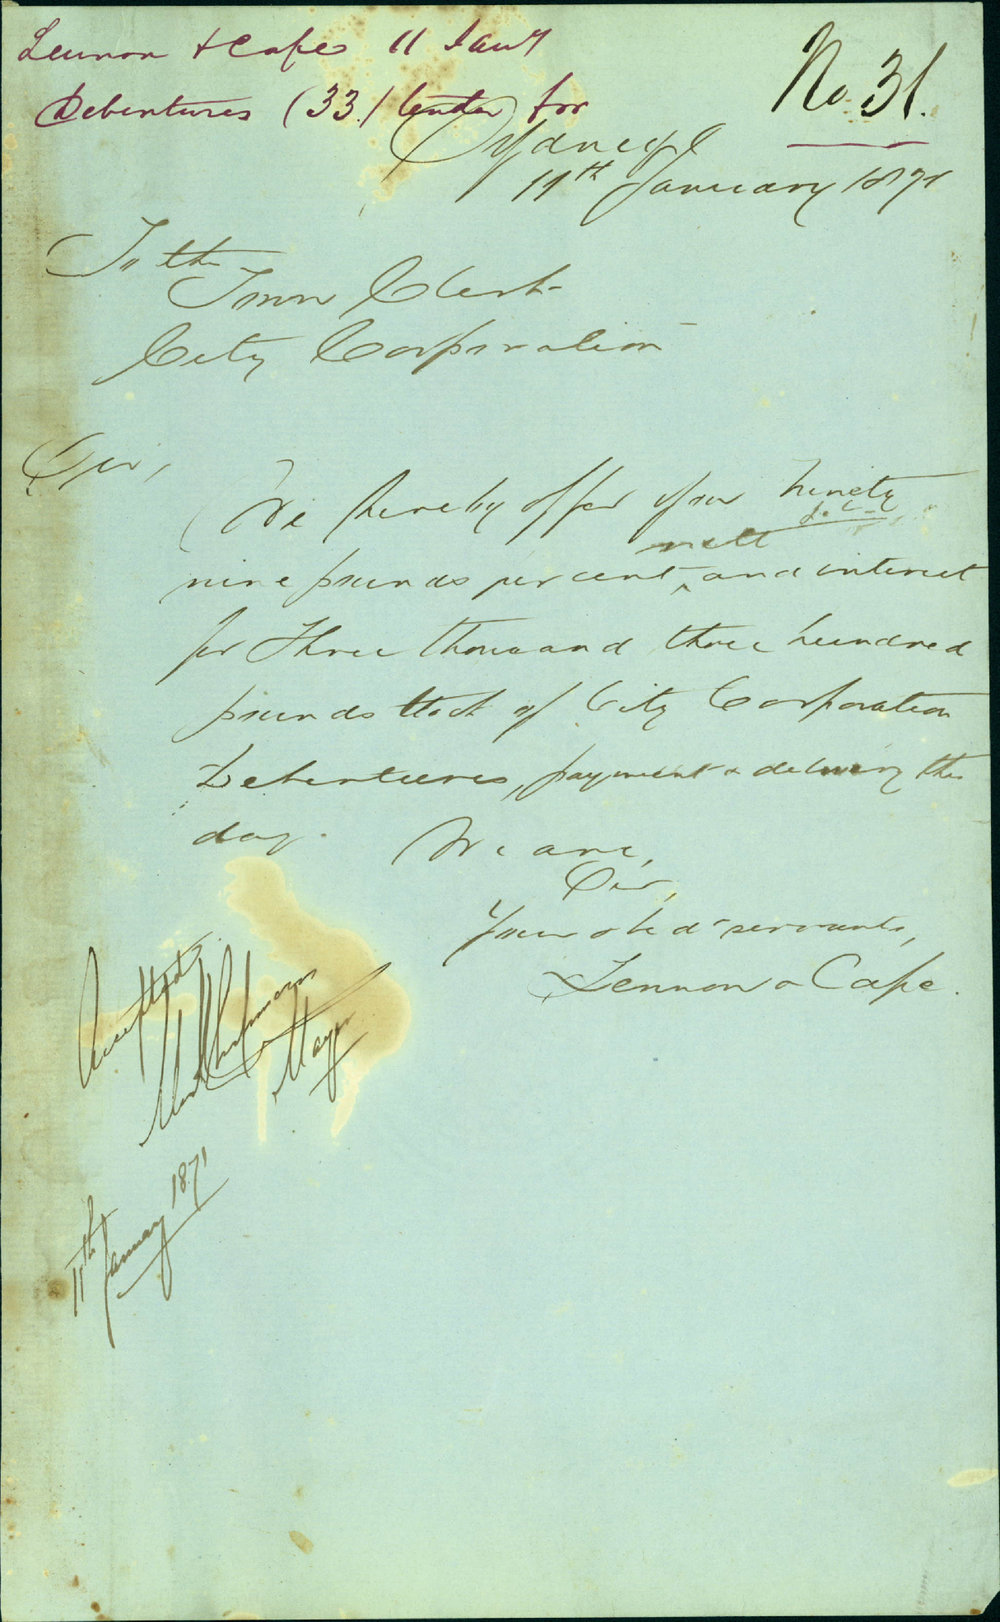 Lennon & Cape 11 Jany
Debentures (33) tender for
No. 31.
Sydney
11th January 1871
To the
Town Clerk
City Corporation
Sir,
We hereby offer you Ninety
L. & C.
nett
nine pounds per cent, and interest
for Three thousand three hundred
pounds stock of City Corporation
Debentures, payment & delivery this
day. We are,
Sir,
Your obedt servants,
Lennon & Cape.
Accepted
Mayor
11th January 1871